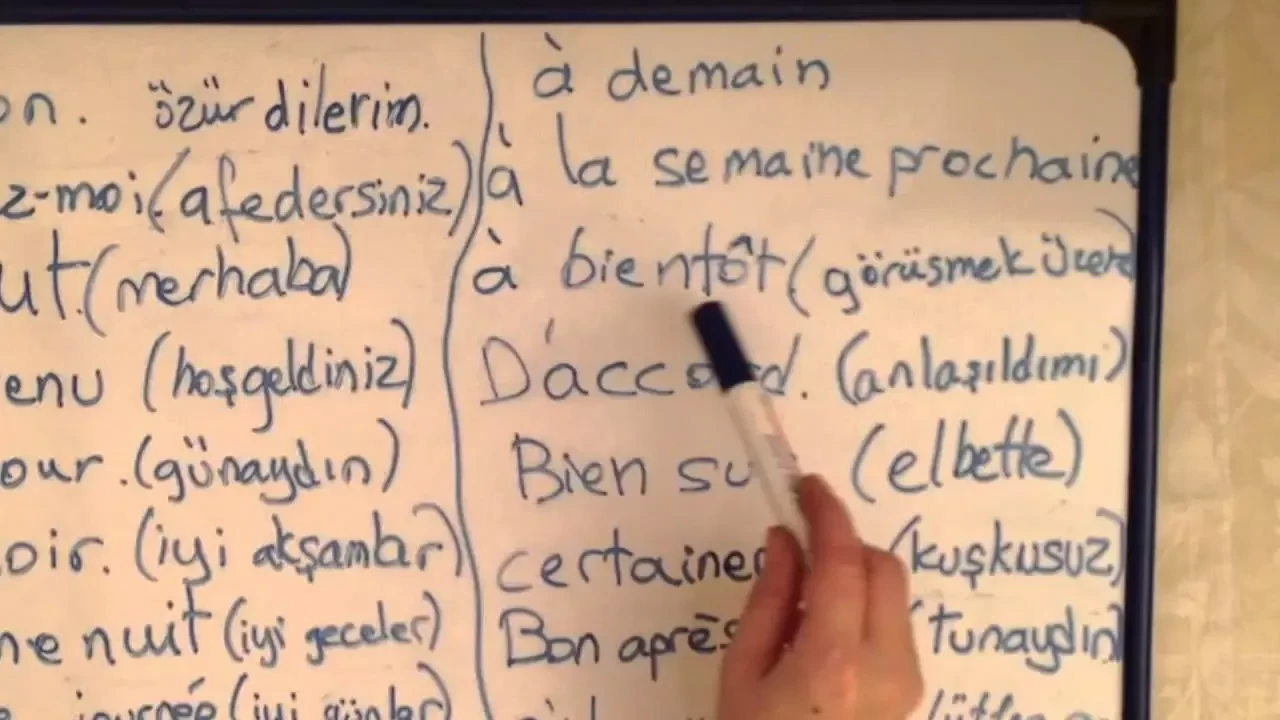 on. özür dilerim.
z-moi (afedersiniz)
ut. (merhaba)
enu (hoşgeldiniz)
our. (günaydın)
oir. (iyi akşamlar)
ne nuit (iyi geceler)
journée (iyi günler)
à demain
à la semaine prochaine
à bientôt (görüşmek üzere)
D'accord. (anlaşıldımı)
Bien su (elbette)
certaine (kuşkusuz)
Bon après (tunaydın)